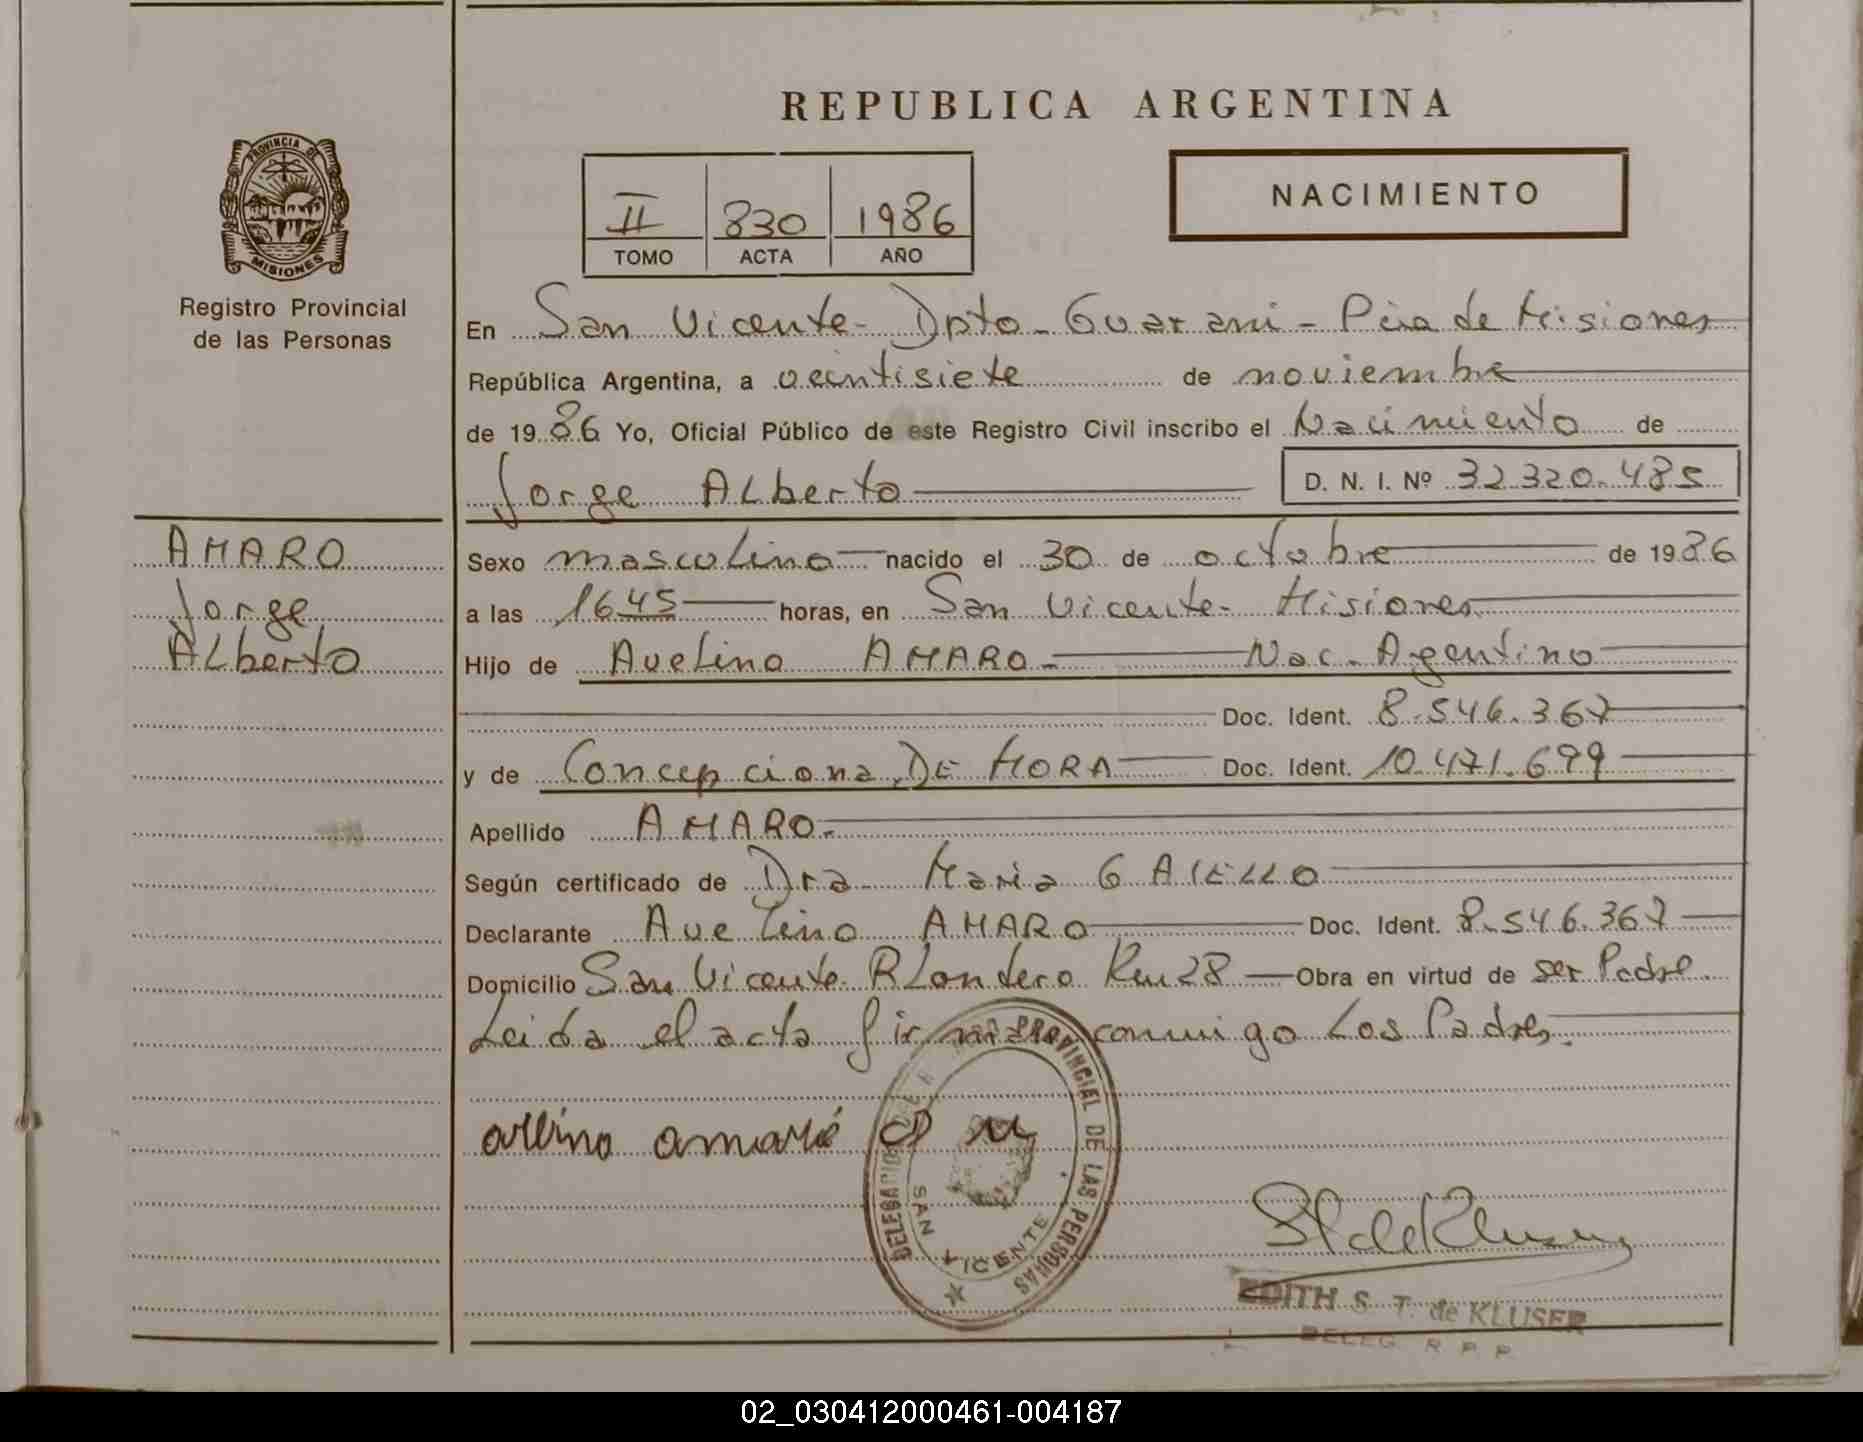 REPUBLICA ARGENTINA
PROVINCIA DE MISIONES
Registro Provincial
de las Personas
II 830 1986
TOMO ACTA AÑO
NACIMIENTO
En San Vicente - Dpto - Guarani - Pcia de Misiones
República Argentina, a veintisiete de noviembre
de 1986 Yo, Oficial Público de este Registro Civil inscribo el Nacimiento de
Jorge Alberto D. N. I. Nº 32.320.485
AMARO
Jorge
Alberto
Sexo masculino nacido el 30 de octubre de 1986
a las 16.45 horas, en San Vicente - Misiones
Hijo de Avelino AMARO - Nac. Argentino
Doc. Ident. 8.546.367
y de Concepciona DE MORA Doc. Ident. 10.471.699
Apellido AMARO.
Según certificado de Dra Maria G AIELLO
Declarante Avelino AMARO Doc. Ident. 8.546.367
Domicilio San Vicente - R Londero Km 28 Obra en virtud de ser Padre.
Leida el acta firman conmigo Los Padres.
DELEGACION PROVINCIAL DE LAS PERSONAS
SAN VICENTE
EDITH S. T. de KLUSER
DELEG R P P
02_030412000461-004187